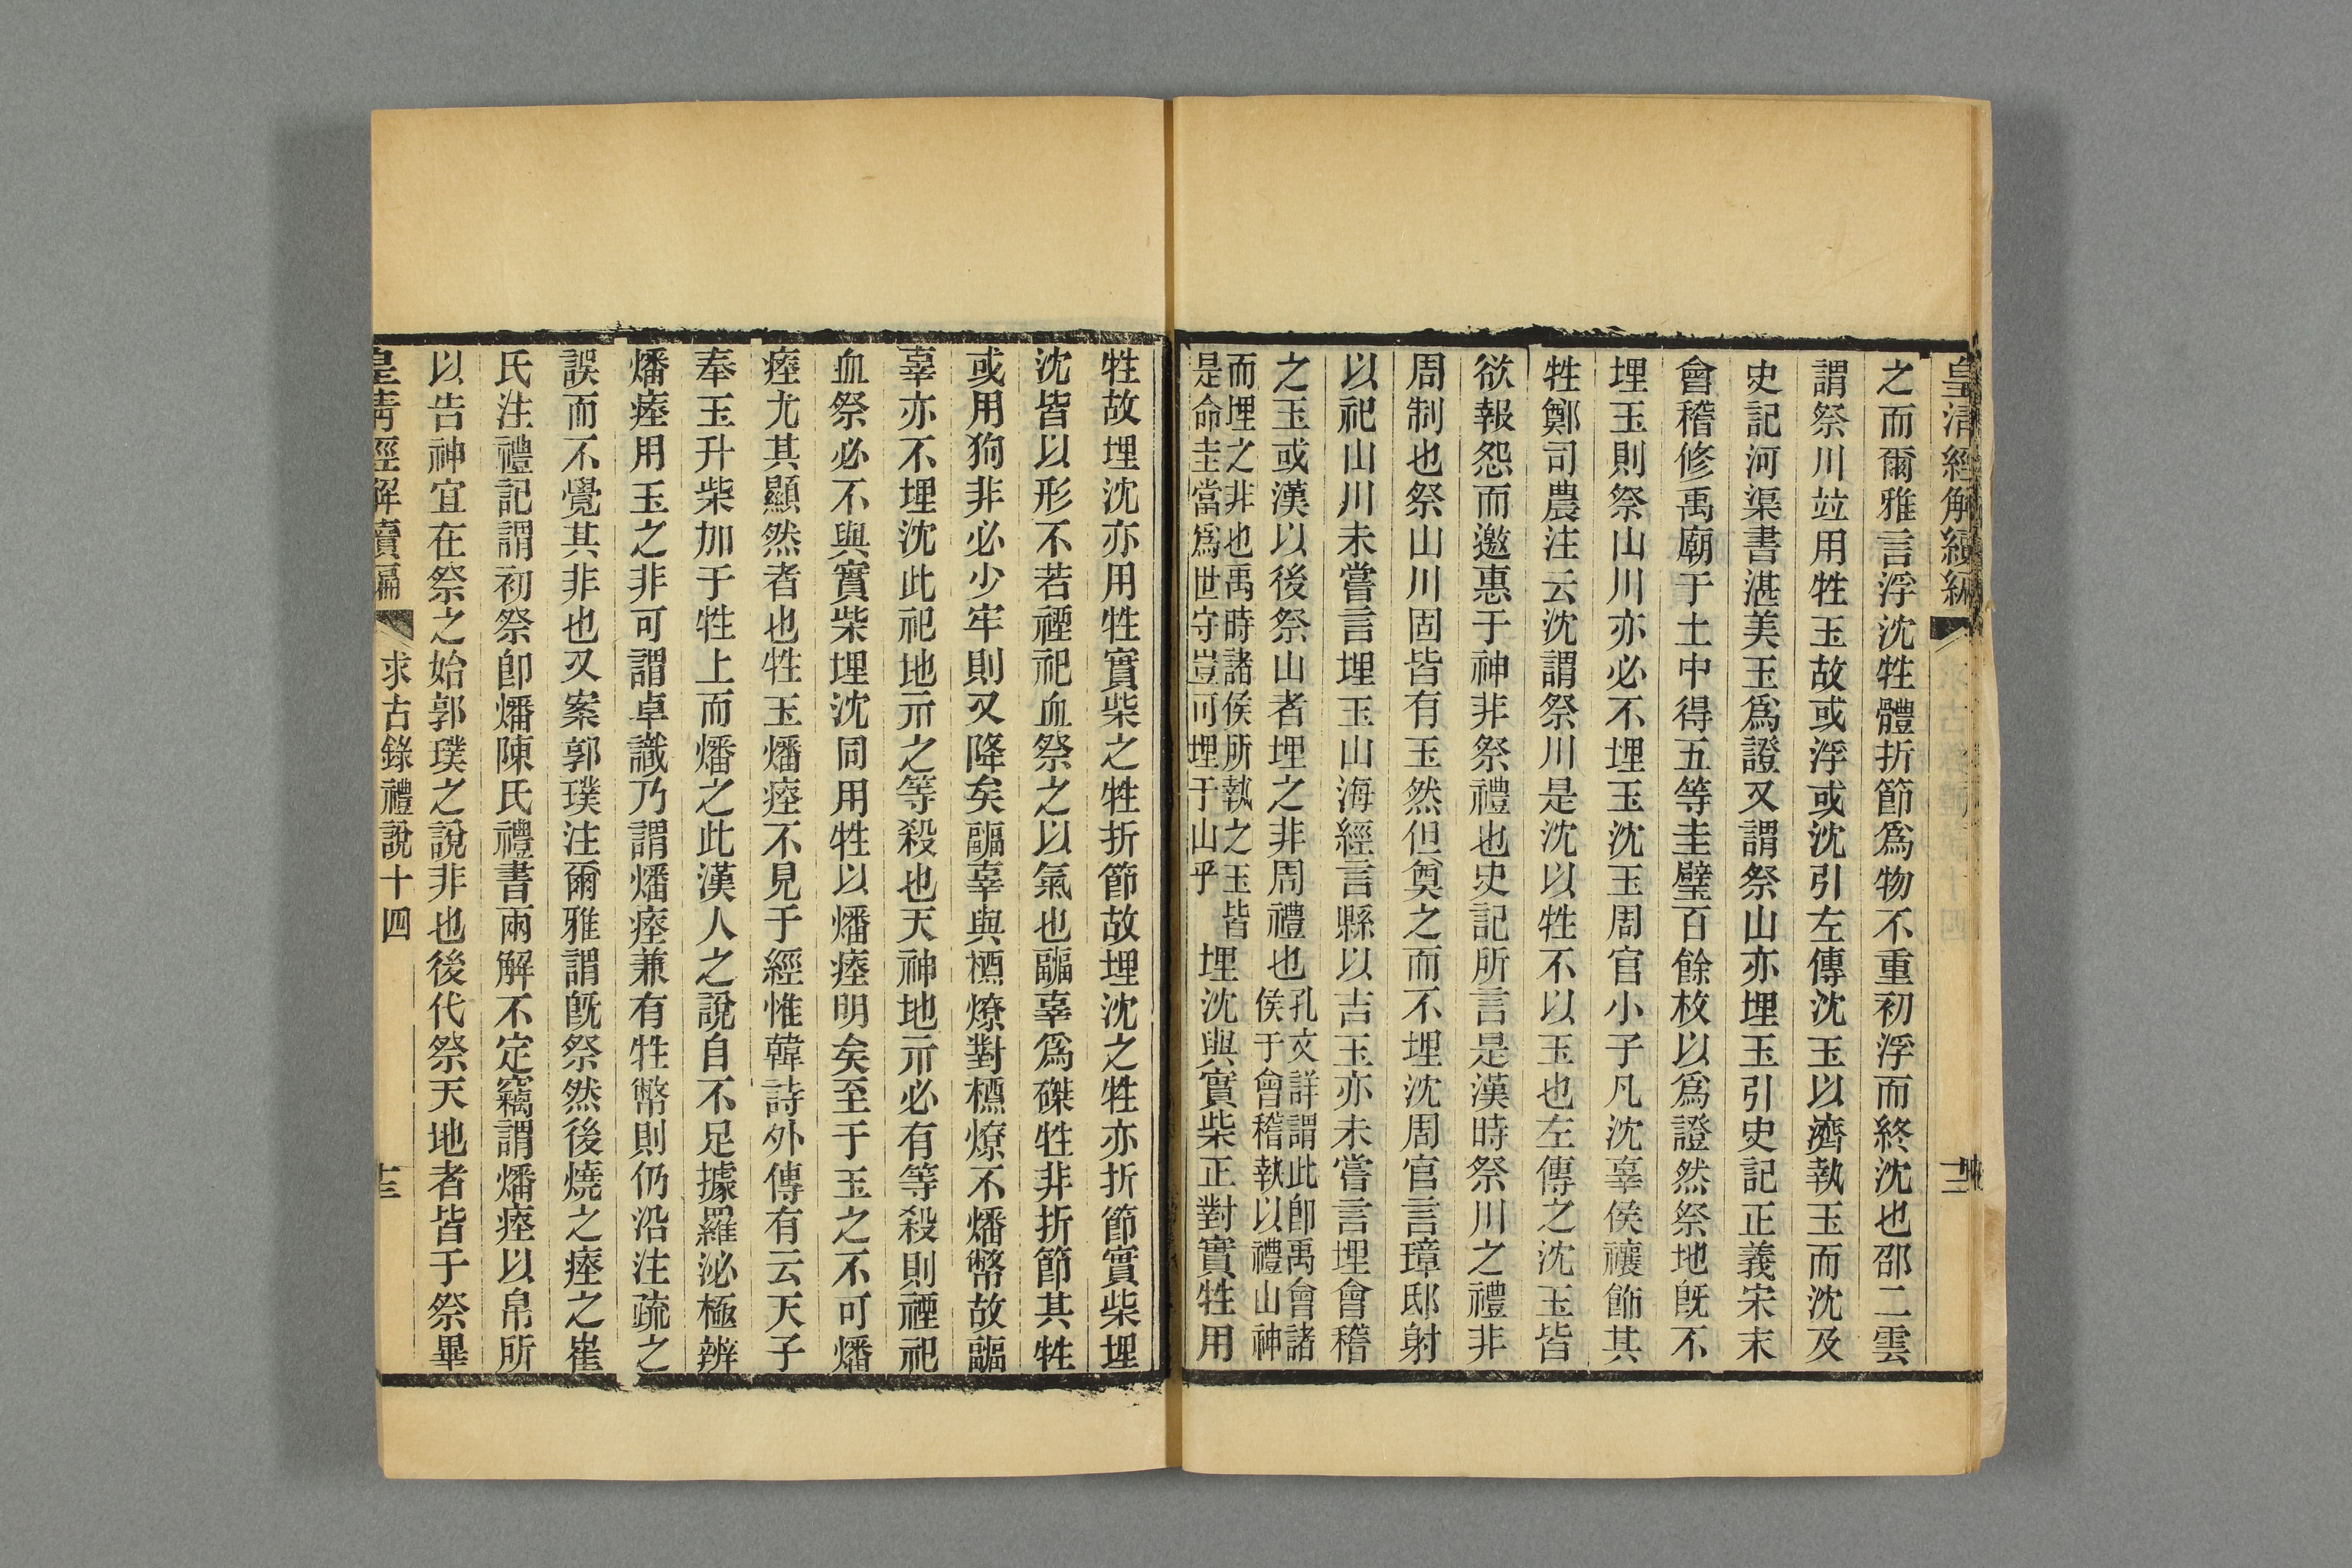 皇清經解續編
之而爾雅言浮沈牲體折節爲物不重初浮而終沈也邵二雲
謂祭川竝用牲玉故或浮或沈引左傳沈玉以濟執玉而沈及
史記河渠書湛美玉爲證又謂祭山亦埋玉引史記正義宋末
會稽修禹廟于土中得五等圭璧百餘枚以爲證然祭地旣不
埋玉則祭山川亦必不埋玉沈玉周官小子凡沈辜侯禳飾其
牲鄭司農注云沈謂祭川是沈以牲不以玉也左傳之沈玉皆
欲報怨而邀惠于神非祭禮也史記所言是漢時祭川之禮非
周制也祭山川固皆有玉然但奠之而不埋沈周官言璋邸射
以祀山川未嘗言埋玉山海經言縣以吉玉亦未嘗言埋會稽
之玉或漢以後祭山者埋之非周禮也孔文詳謂此卽禹會諸
侯于會稽執以禮山神
而埋之非也禹時諸侯所執之玉皆
是命圭當爲世守豈可埋于山乎
埋沈與實柴正對實牲用
牲故埋沈亦用牲實柴之牲折節故埋沈之牲亦折節實柴埋
沈皆以形不若禋祀血祭之以氣也疈辜爲磔牲非折節其牲
或用狗非必少牢則又降矣疈辜與槱燎對槱燎不燔幣故疈
辜亦不埋沈此祀地示之等殺也天神地示必有等殺則禋祀
血祭必不與實柴埋沈同用牲以燔瘞明矣至于玉之不可燔
瘞尤其顯然者也牲玉燔瘞不見于經惟韓詩外傳有云天子
奉玉升柴加于牲上而燔之此漢人之說自不足據羅泌極辨
燔瘞用玉之非可謂卓識乃謂燔瘞兼有牲幣則仍沿注疏之
誤而不覺其非也又案郭璞注爾雅謂旣祭然後燒之瘞之崔
氏注禮記謂初祭卽燔陳氏禮書兩解不定竊謂燔瘞以帛所
以告神宜在祭之始郭璞之說非也後代祭天地者皆于祭畢
皇清經解續編
求古錄禮說十四
十三